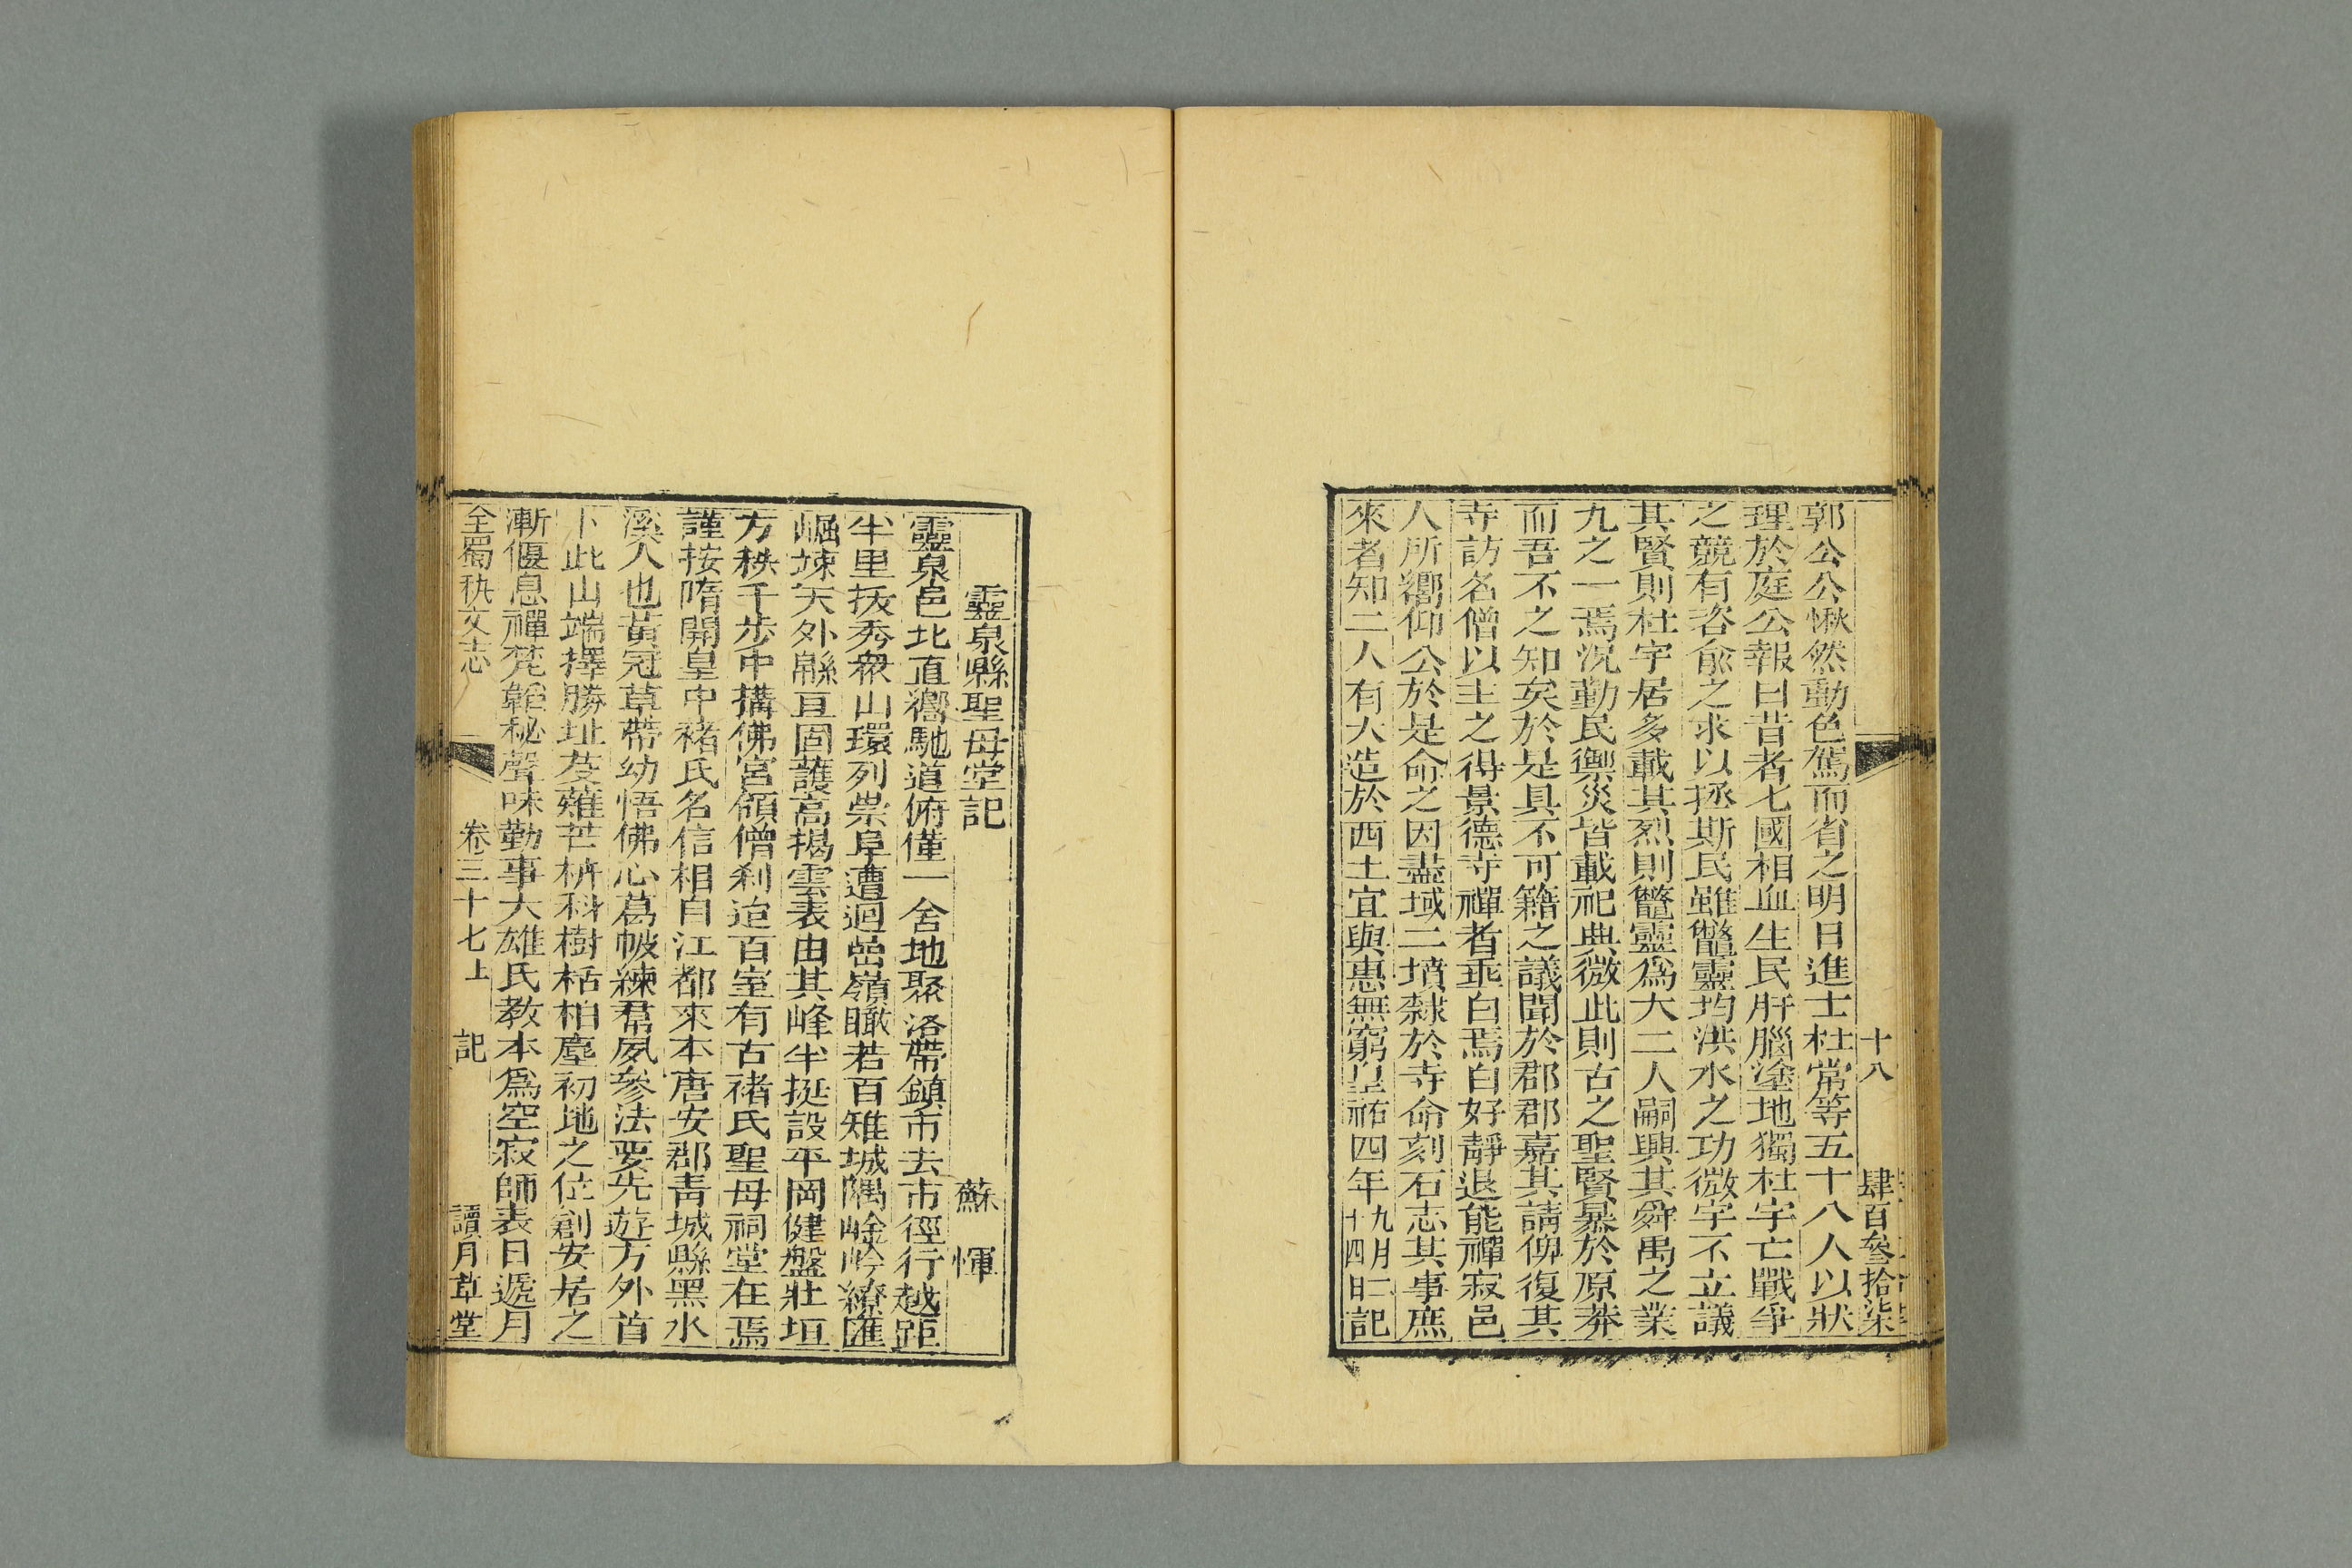 十八
肆百參拾柒
郭公公愀然動色駕而省之明日進士杜常等五十八人以狀
理於庭公報曰昔者七國相血生民肝腦塗地獨杜宇亡戰爭
之競有咨俞之求以拯斯民雖鼈靈均洪水之功微宇不立議
其賢則杜宇居多載其烈則鼈靈為大二人嗣興其舜禹之業
九之一焉況勤民禦災皆載祀典微此則古之聖賢暴於原莽
而吾不之知矣於是具不可籍之議聞於郡郡嘉其請俾復其
寺訪名僧以主之得景德寺禪者垂白焉白好靜退能禪寂邑
人所嚮仰公於是命之因盡域二墳隸於寺命刻石志其事庶
來者知二人有大造於西土宜與惠無窮皇祐四年九月二十四日記
靈泉縣聖母堂記
蘇惲
靈泉邑北直嚮馳道俯僅一舍地聚洛帶鎮市去市徑行越距
半里拔秀衆山環列崇阜遭迴嵒嶺瞰若百雉城隅崯岭繚匯
崛竦天外緜亘固護高揭雲表由其峰半挺設平岡健盤壯垣
方秩千步中搆佛宮領僧刹迨百室有古禇氏聖母祠堂在焉
謹按隋開皇中禇氏名信相自江都來本唐安郡靑城縣黑水
溪人也黃冠草帶幼悟佛心葛帔練帬夙參法要先遊方外首
卜此山端擇勝址芟薙芒枿科樹栝柏塵初地之位創安居之
漸偃息禪梵韜秘聲味勤事大雄氏教本為空寂師表日遞月
全蜀秇文志
卷三十七上
記
讀月草堂